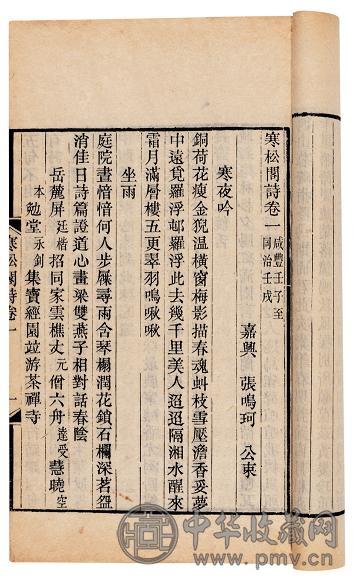 寒松閣詩卷一 咸豐壬子至同治壬戌
嘉興 張鳴珂 公束
寒夜吟
銅荷花瘦金猊温橫窗梅影描春魂虯枝雪壓澹香妥夢
中遠覓羅浮邨羅浮此去幾千里美人迢迢隔湘水醒來
霜月滿層樓五更翠羽鳴啾啾
坐雨
庭院晝愔愔何人步屧尋雨含琴榻潤花鎖石欄深茗盌
消佳日詩篇證道心畫梁雙燕子相對話春陰
岳麓屏廷楷招同家雲樵丈元僧六舟達受慧曉空
本勉堂永釗集寶經園竝游茶禪寺
寒松閣詩卷一
一
中华收藏网
www.pmv.cn